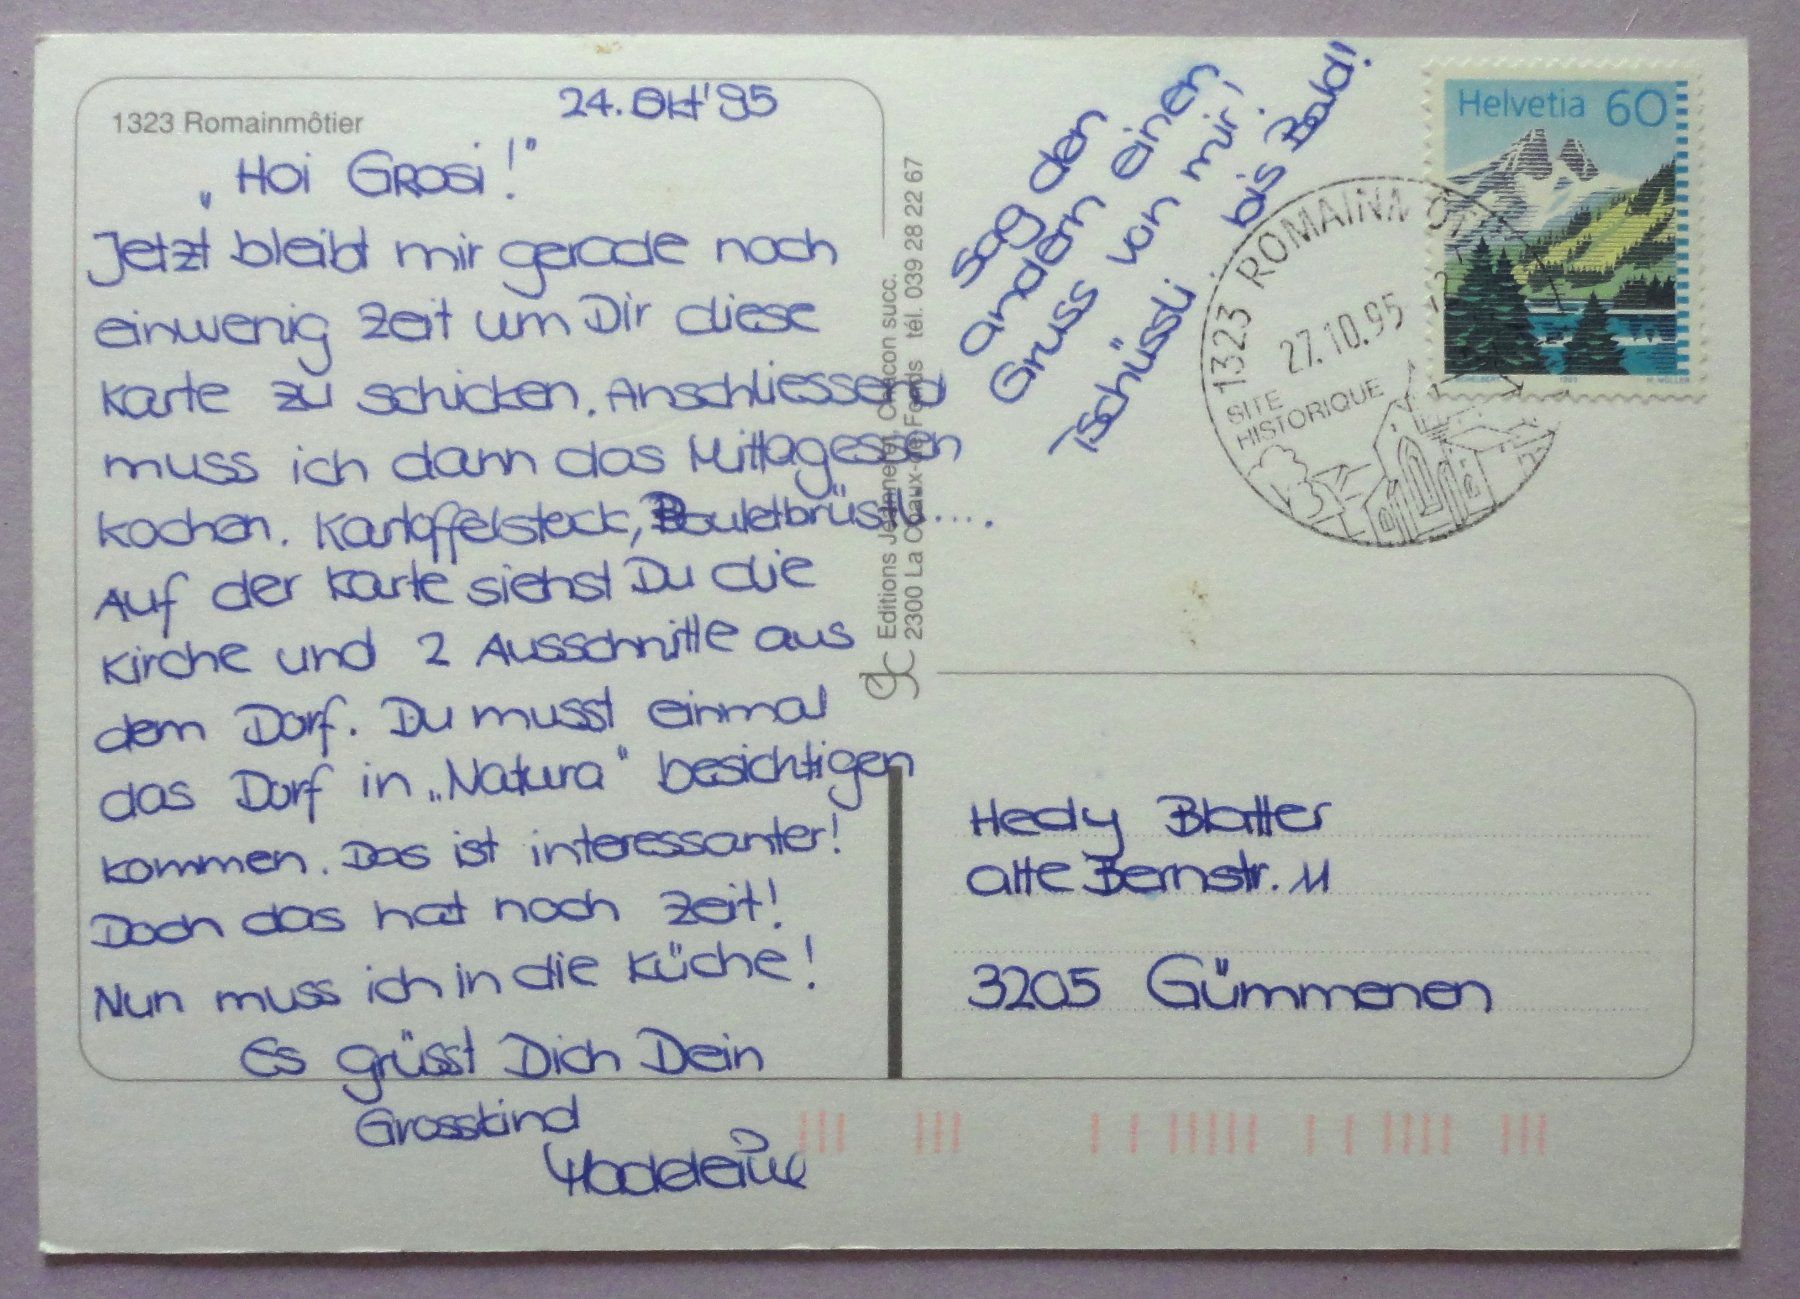 1323 Romainmôtier
24. Okt '95
„Hoi Grosi!"
Jetzt bleibt mir gerade noch
einwenig Zeit um Dir diese
Karte zu schicken. Anschliessend
muss ich dann das Mittagessen
kochen. Kartoffelstock, Pouletbrüstli....
Auf der Karte siehst Du die
Kirche und 2 Ausschnitte aus
dem Dorf. Du musst einmal
das Dorf in „Natura" besichtigen
kommen. Das ist interessanter!
Doch das hat noch Zeit!
Nun muss ich in die Küche!
Es grüsst Dich Dein
Grosskind
Madeleine
Sag den
andern einen
Gruss von mir!
Tschüssli bis Bald!
Editions Jeanneret, Chacon succ.
2300 La Chaux-de-Fonds tél. 039 28 22 67
Helvetia 60
1323 ROMAINMÔTIER
27.10.95
SITE
HISTORIQUE
Hedy Blatter
alte Bernstr. 11
3205 Gümmenen